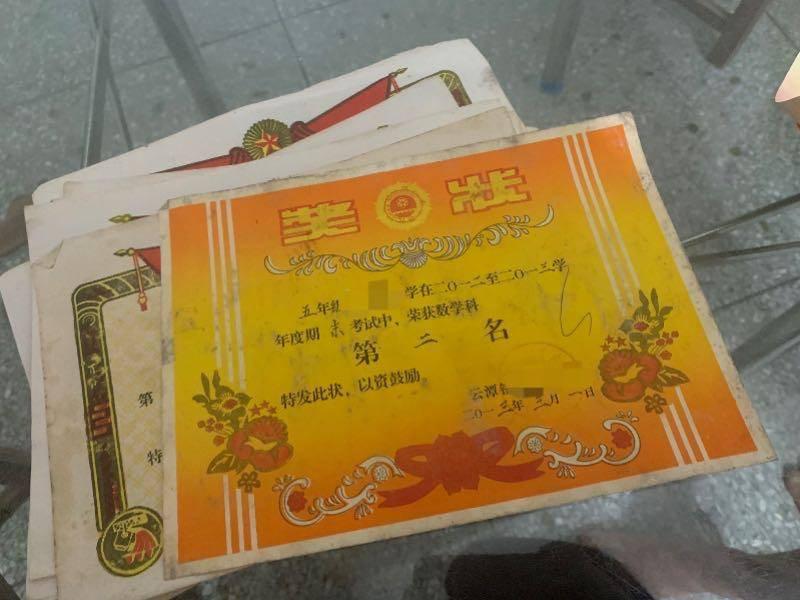 奖 状
五年级 学在二〇一二至二〇一三学
年度期末考试中，荣获数学科
第 二 名
特发此状，以资鼓励
云潭
二〇一三年 三月 一日
第
特